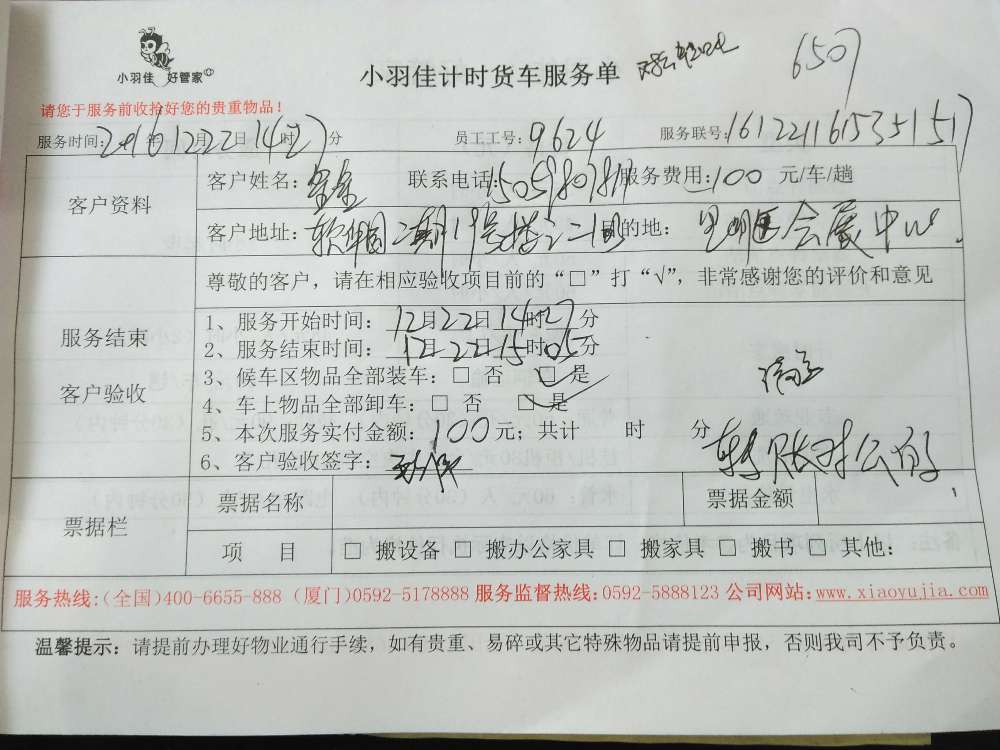 小羽佳 好管家
小羽佳计时货车服务单
6507
请您于服务前收拾好您的贵重物品！
服务时间：2016年12月22日14时27分 员工工号：9624 服务联号：161221161535151
客户资料
客户姓名： 联系电话： 服务费用：100 元/车/趟
客户地址：软件园二期19号楼 目的地： 会展中心
服务结束
客户验收
尊敬的客户，请在相应验收项目前的“□”打“√”，非常感谢您的评价和意见
1、服务开始时间：12月22日14时27分
2、服务结束时间：12月22日15时05分
3、候车区物品全部装车：□ 否 □ 是
满意
4、车上物品全部卸车：□ 否 □ 是
5、本次服务实付金额：100元；共计 时 分
转账对公的
6、客户验收签字：
票据栏
票据名称 票据金额
项 目 □ 搬设备 □ 搬办公家具 □ 搬家具 □ 搬书 □ 其他：
服务热线:(全国)400-6655-888 (厦门)0592-5178888 服务监督热线:0592-5888123 公司网站:www.xiaoyujia.com
温馨提示：请提前办理好物业通行手续，如有贵重、易碎或其它特殊物品请提前申报，否则我司不予负责。